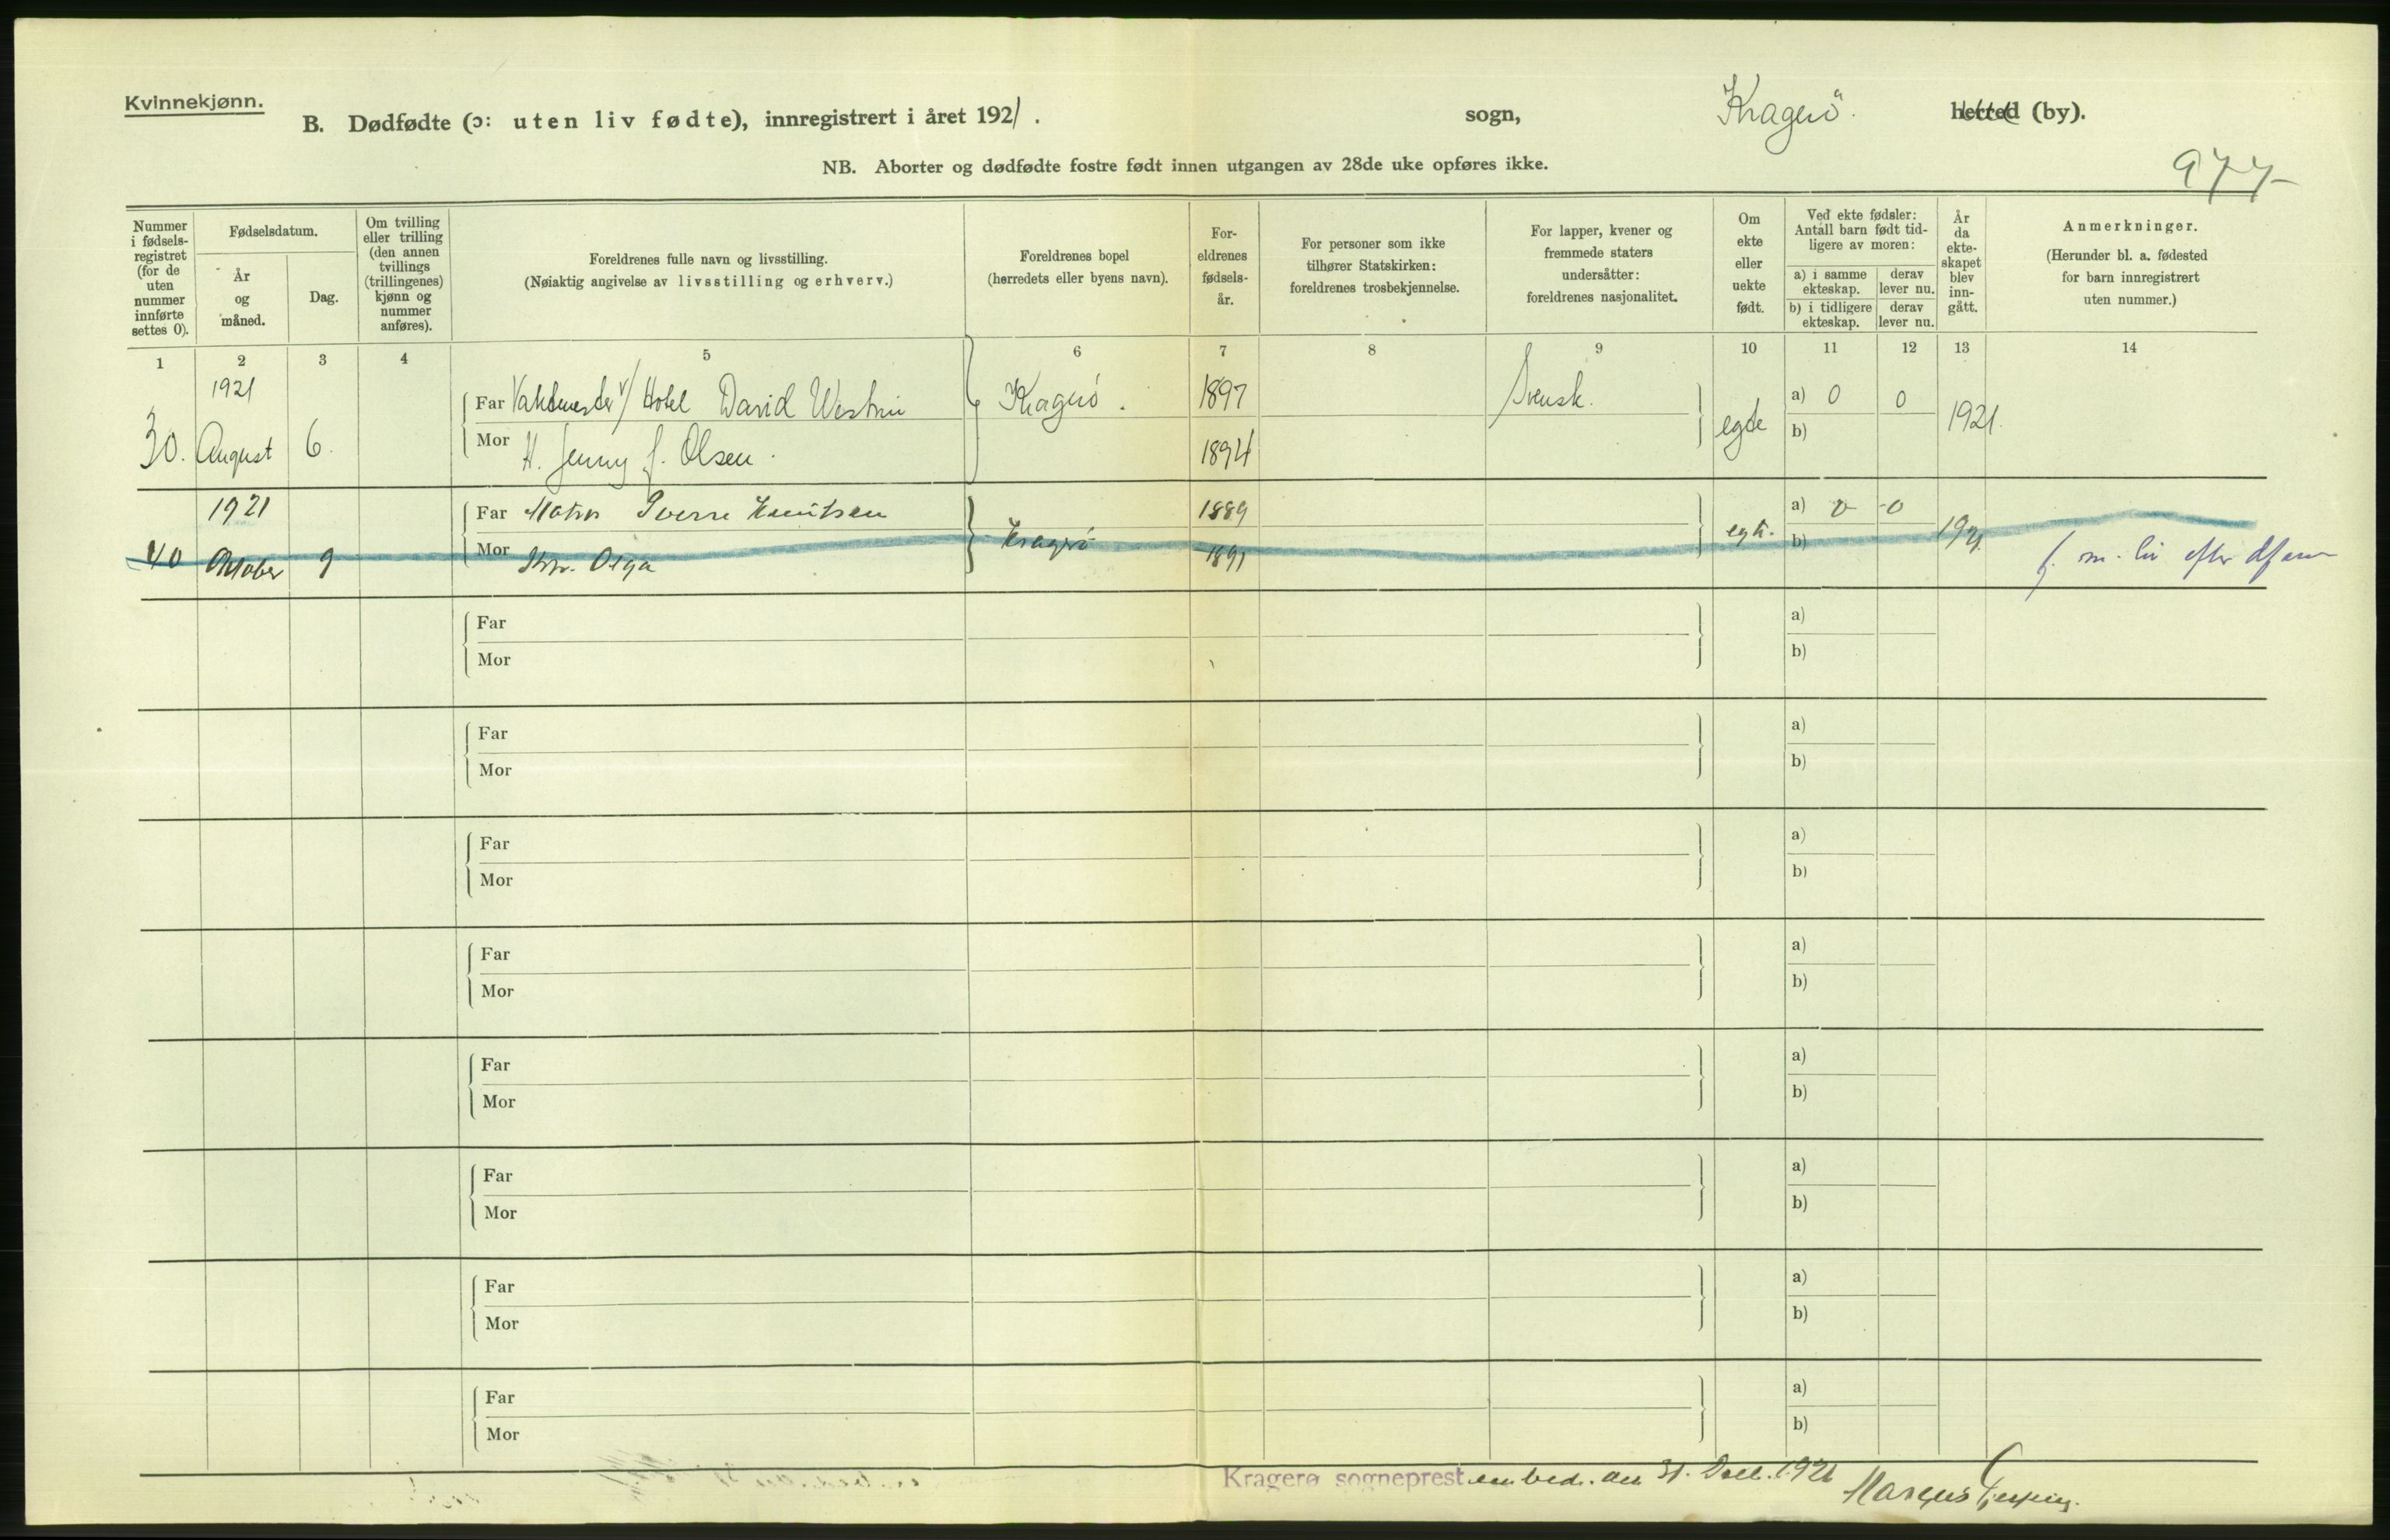 Kvinnekjønn.
B. Dødfødte (ɔ: uten liv fødte), innregistrert i året 1921. sogn, Kragerö. herred (by).
NB. Aborter og dødfødte fostre født innen utgangen av 28de uke opføres ikke.
977-
Nummer i fødsels-registret (for de uten nummer innførte settes 0).
Fødselsdatum.
År og måned.
Dag.
Om tvilling eller trilling (den annen tvillings (trillingenes) kjønn og nummer anføres).
Foreldrenes fulle navn og livsstilling.
(Nøiaktig angivelse av livsstilling og erhverv.)
Foreldrenes bopel
(herredets eller byens navn).
For-eldrenes fødsels-år.
For personer som ikke tilhører Statskirken: foreldrenes trosbekjennelse.
For lapper, kvener og fremmede staters undersåtter: foreldrenes nasjonalitet.
Om ekte eller uekte født.
Ved ekte fødsler: Antall barn født tid-ligere av moren:
a) i samme ekteskap.
derav lever nu.
b) i tidligere ekteskap.
derav lever nu.
År da ekte-skapet blev inn-gått.
Anmerkninger.
(Herunder bl. a. fødested for barn innregistrert uten nummer.)
1 2 3 4 5 6 7 8 9 10 11 12 13 14
1921
Far Vaktmester v/ Hotel David Westrin Kragerö. 1897 Svensk. a) 0 0
30. August 6. Mor H. Jenny J. Olsen. 1894 egte b) 1921.
1921
Far Matr. Sverre Knutsen 1889 a) 0 0
40 Oktober 9 Mor Olga Kragerö 1891 egte. b) 1921
f. m. liv efter
Far a)
Mor b)
Far a)
Mor b)
Far a)
Mor b)
Far a)
Mor b)
Far a)
Mor b)
Far a)
Mor b)
Far a)
Mor b)
Far a)
Mor b)
Kragerø sogneprestembed. den 31. Dec. 1921
Marcus